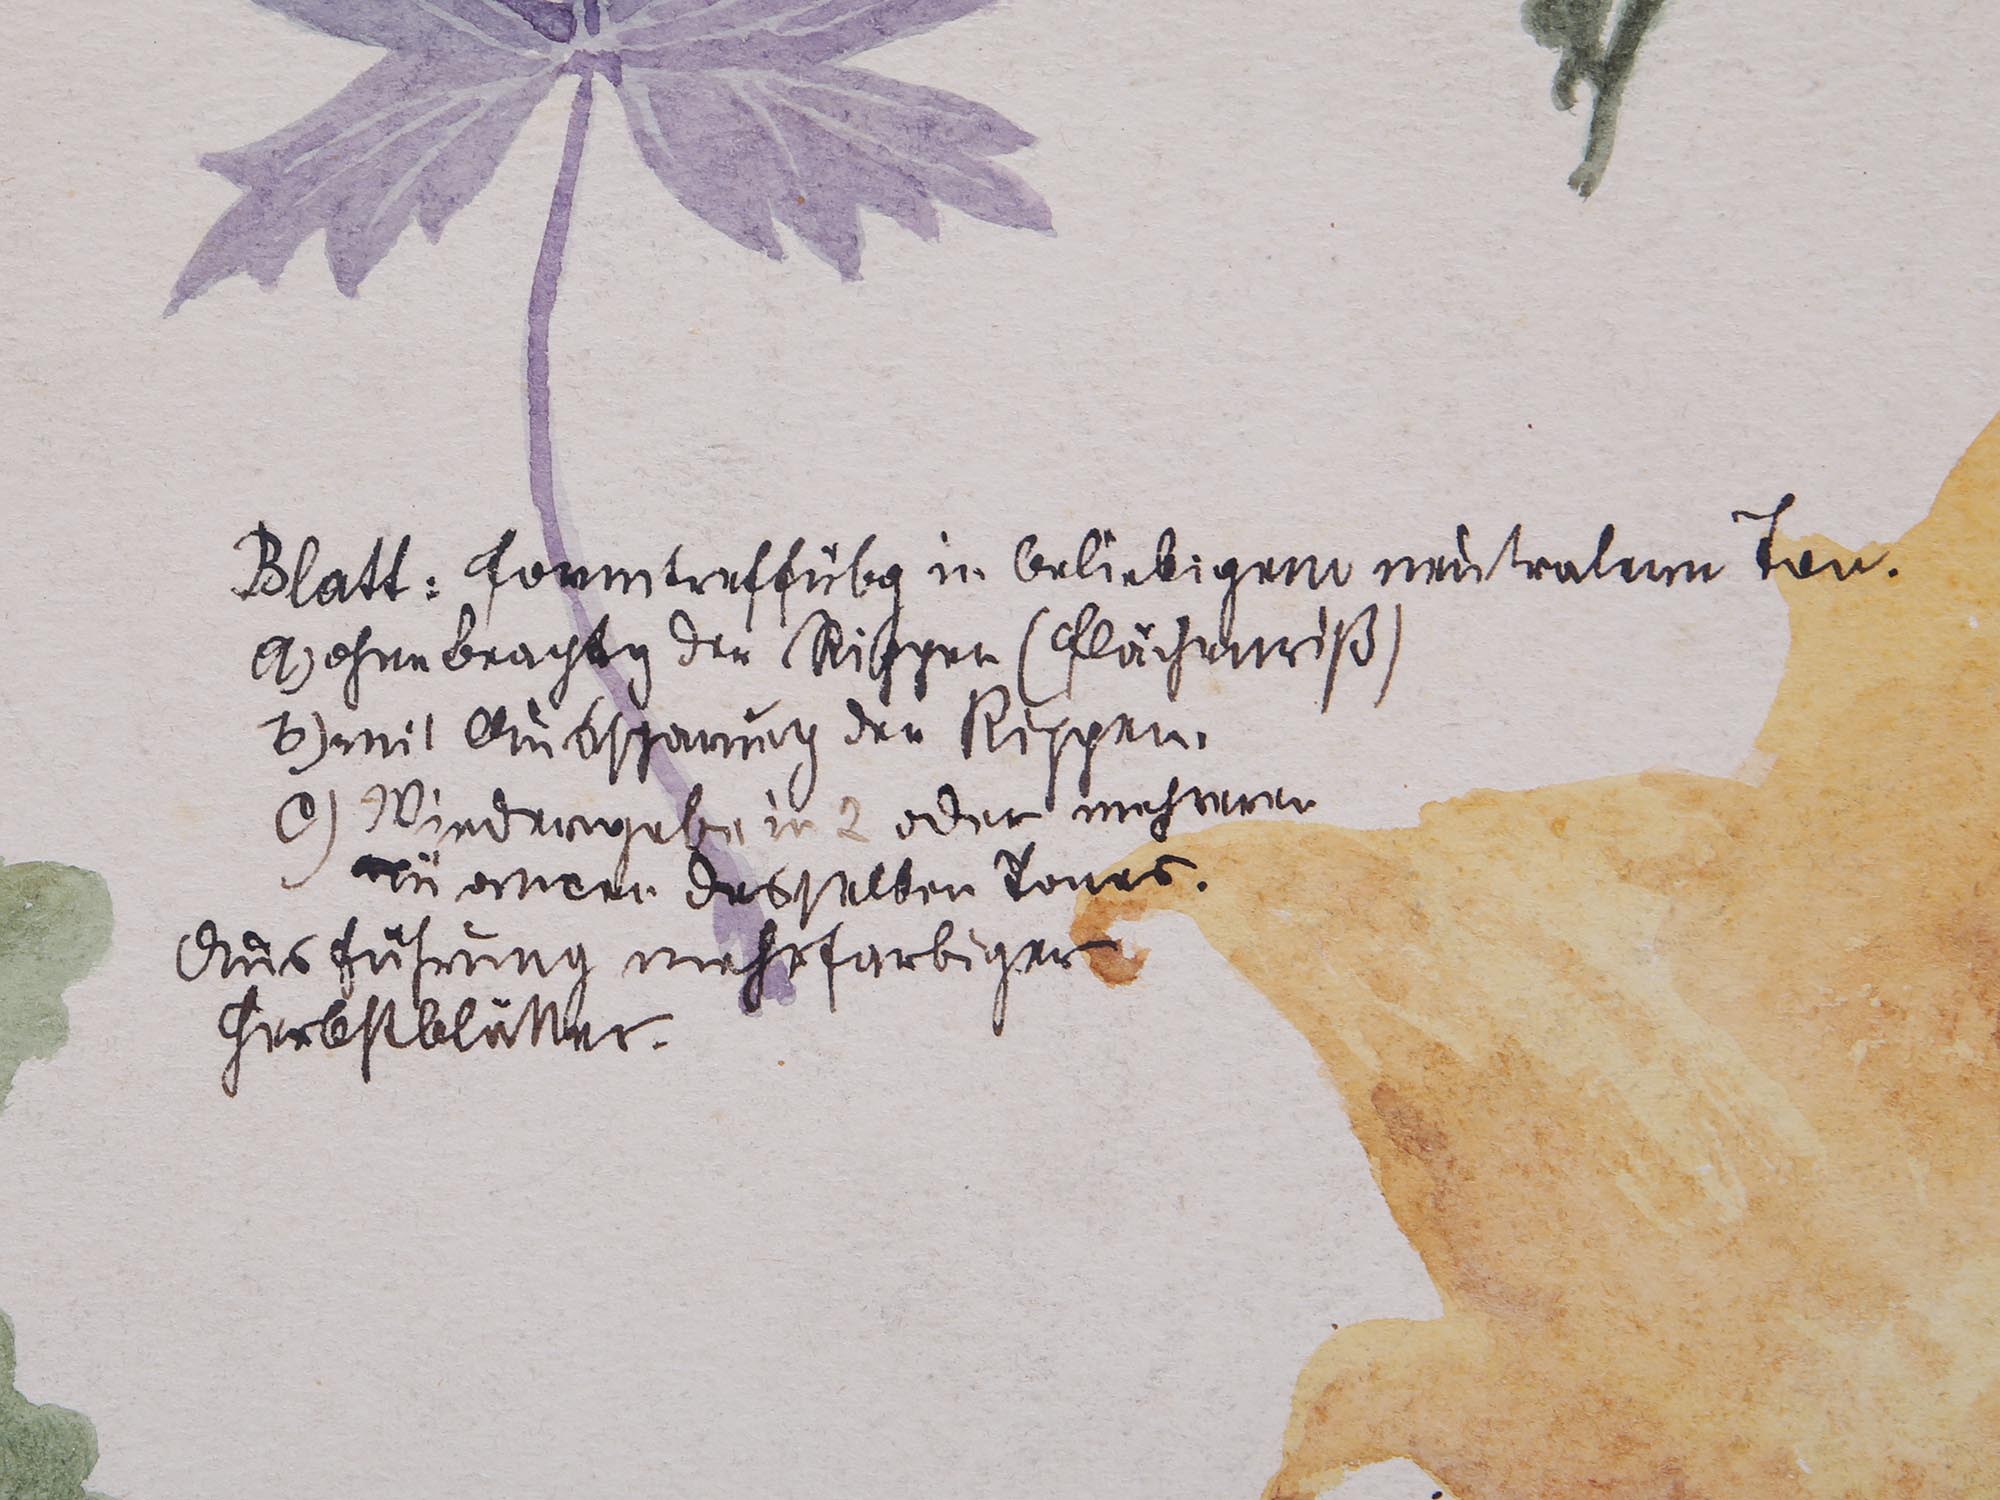 Blatt: Formtreffübg in beliebigem neutralem Ton.
a) ohne beachtg der Rippen (Flächenriß)
b) mit Aussparung der Rippen.
c) Wiedergabe in 2 oder mehreren
Nüancen desselben Tones.
Ausführung mehrfarbiger
Herbstblätter.